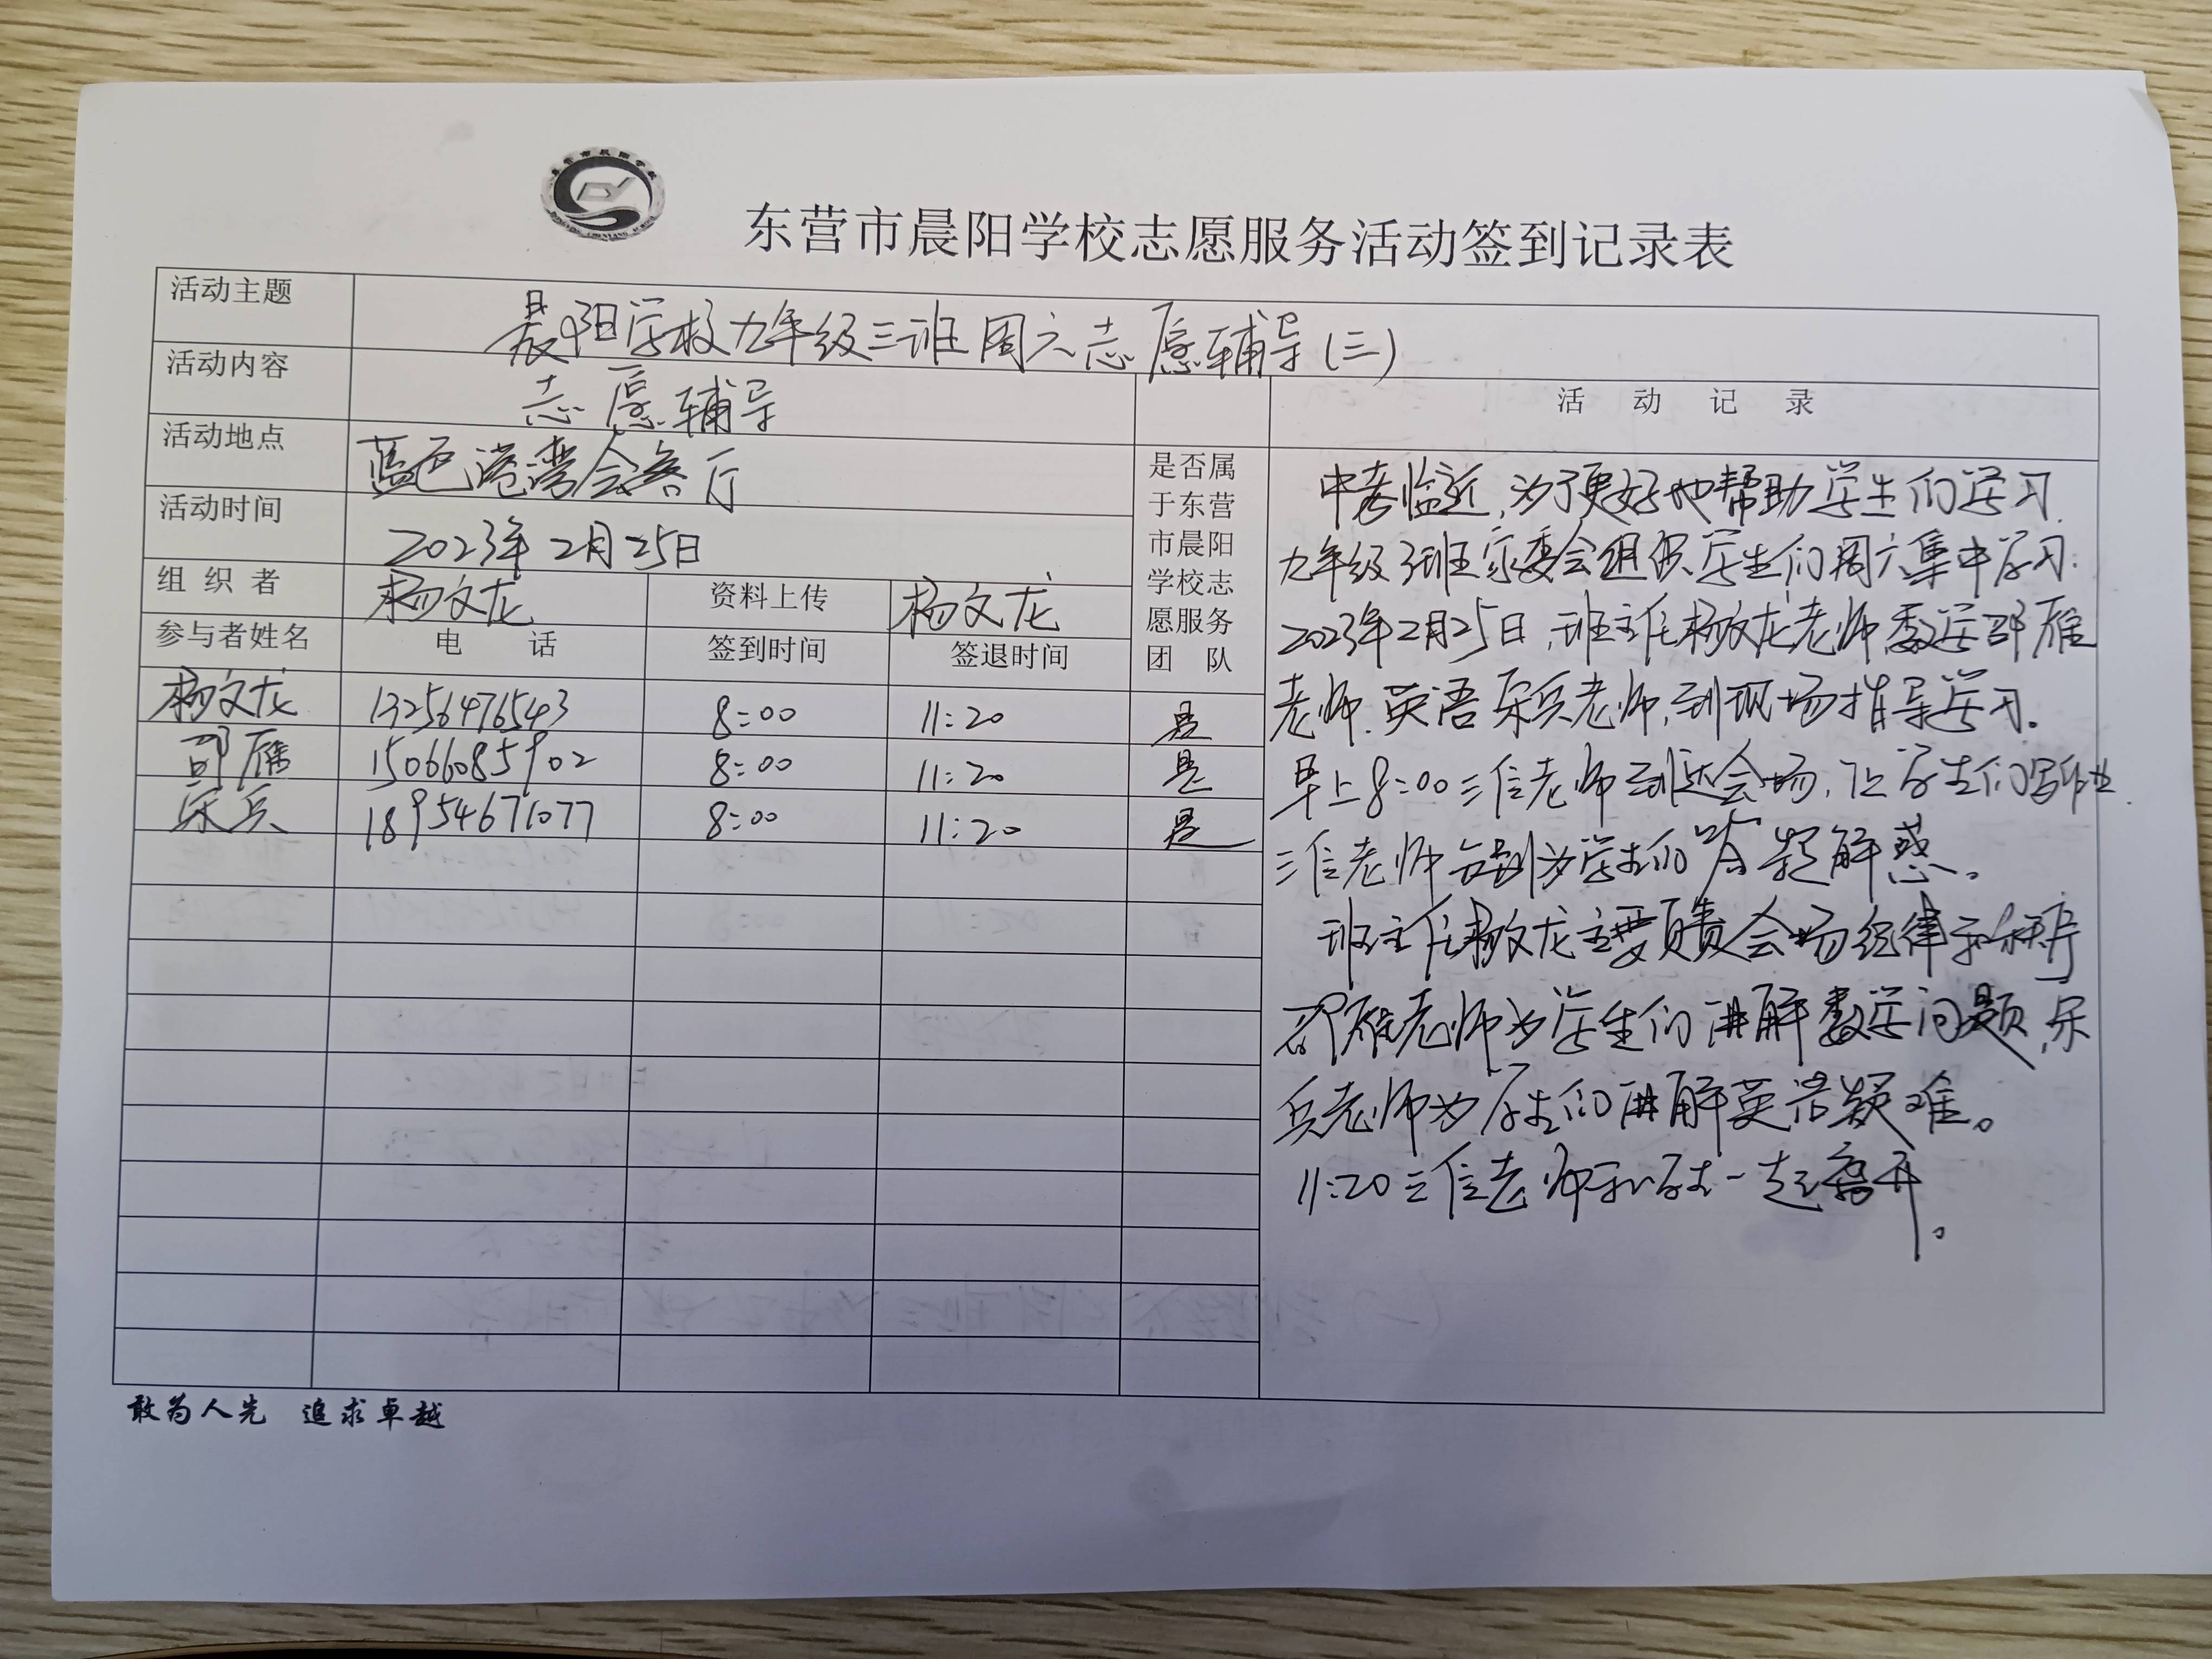 东营市晨阳学校志愿服务活动签到记录表
活动主题 晨阳学校九年级三班周六志愿辅导(三)
活动内容 志愿辅导
活动地点 蓝色港湾会客厅
活动时间 2023年2月25日
组织者 杨文龙 资料上传 杨文龙
参与者姓名 电话 签到时间 签退时间 是否属于东营市晨阳学校志愿服务团队
杨文龙 13256476543 8:00 11:20 是
邵雁 15066085902 8:00 11:20 是
兵 18954671077 8:00 11:20 是
活动记录
中考临近,为了更好地帮助学生们学习.
九年级3班家委会组织学生们周六集中学习.
2023年2月25日,班主任杨文龙老师,数学邵雁
老师.英语 兵老师,到现场指导学习.
早上8:00三位老师到达会场,让学生们写作业.
三位老师分别为学生们答疑解惑。
班主任杨文龙主要负责会场纪律和秩序
邵雁老师为学生们讲解数学问题,
兵老师为学生们讲解英语疑难。
11:20三位老师和学生一起离开。
敢为人先 追求卓越